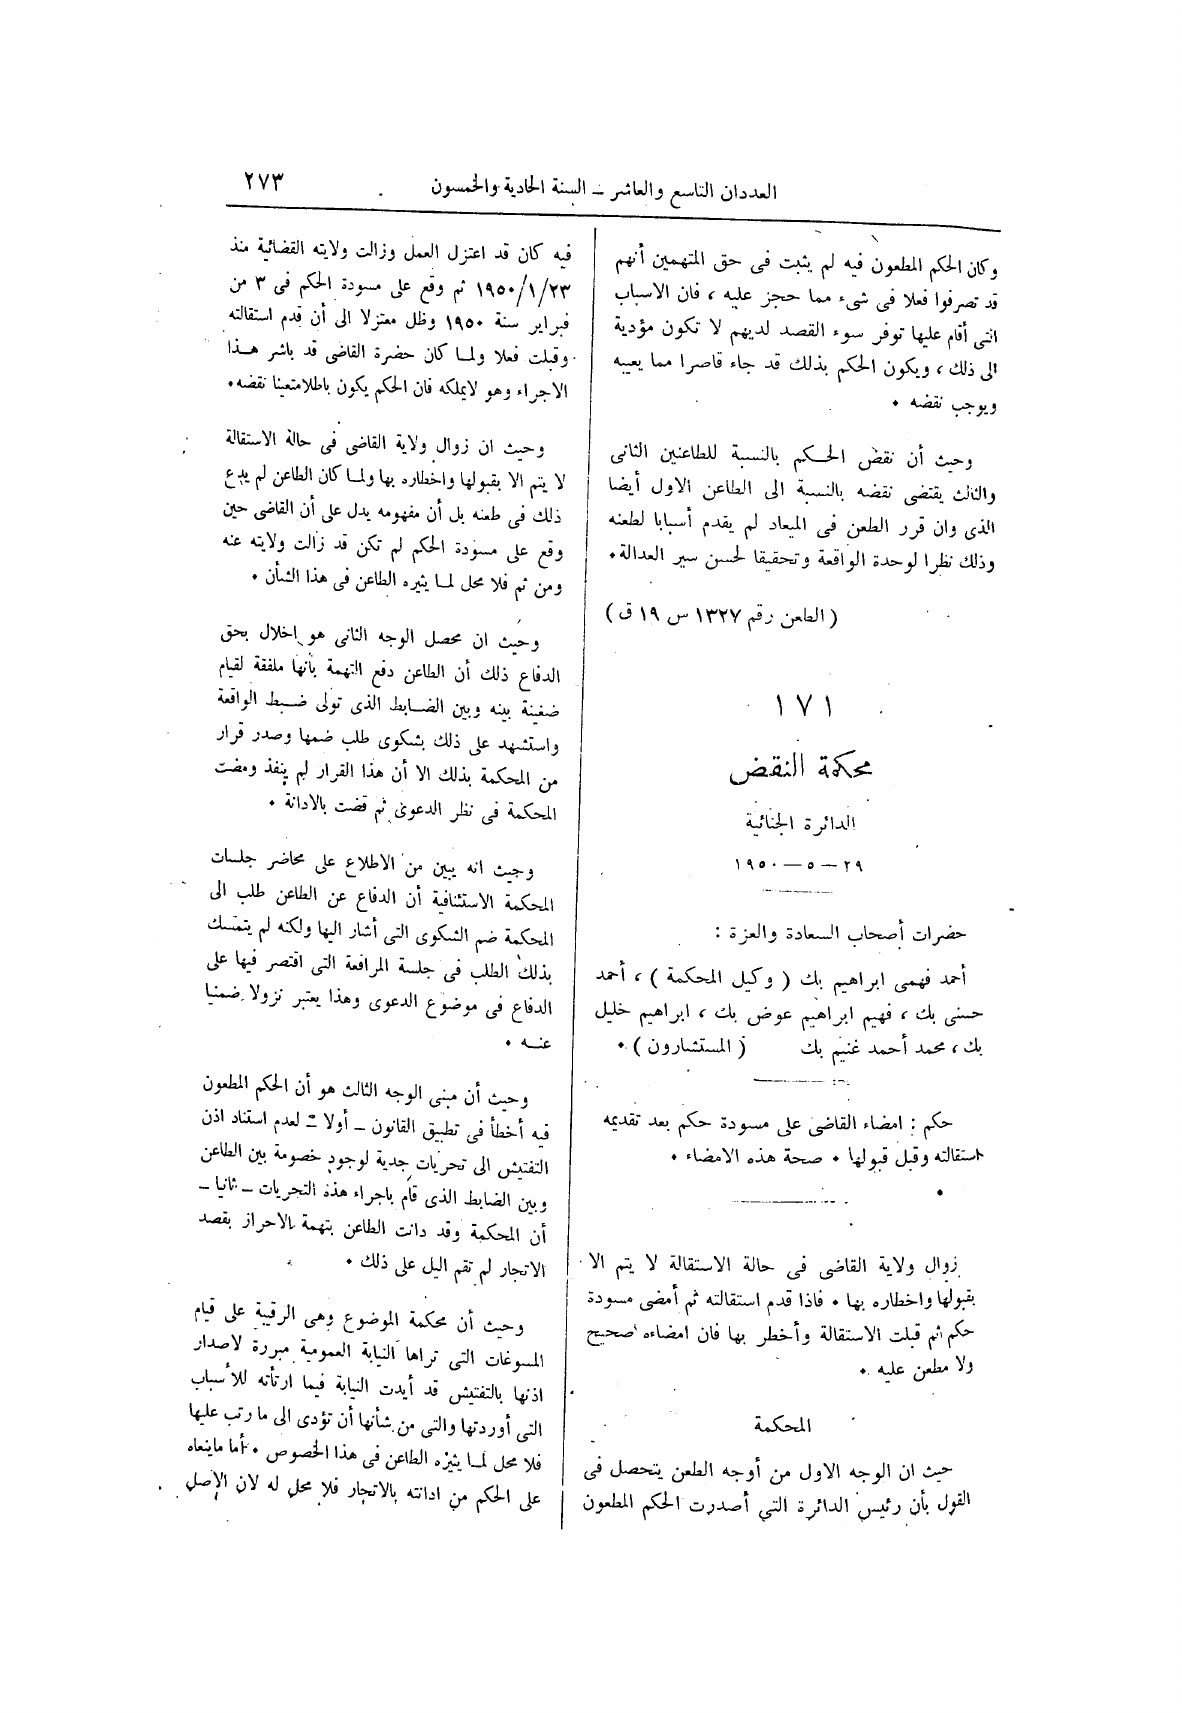 العددان التاسع والعاشر – السنة الحادية والخمسون
٢٧٣
وكان الحكم المطعون فيه لم يثبت فى حق المتهمين أنهم
قد تصرفوا فعلا فى شىء مما حجز عليه ، فان الاسباب
التى أقام عليها توفر سوء القصد لديهم لا تكون مؤدية
الى ذلك ، ويكون الحكم بذلك قد جاء قاصرا مما يعيبه
ويوجب نقضه .
وحيث أن نقض الحكم بالنسبة للطاعنين الثانى
والثالث يقتضى نقضه بالنسبة الى الطاعن الاول أيضا
الذى وان قرر الطعن فى الميعاد لم يقدم أسبابا لطعنه
وذلك نظرا لوحدة الواقعة وتحقيقا لحسن سير العدالة .
( الطعن رقم ١٣٢٧ س ١٩ ق )
١٧١
محكمة النقض
الدائرة الجنائية
٢٩ – ٥ – ١٩٥٠
حضرات أصحاب السعادة والعزة :
أحمد فهمى ابراهيم بك ( وكيل المحكمة ) ، أحمد
حسنى بك ، فهيم ابراهيم عوض بك ، ابراهيم خليل
بك ، محمد أحمد غنيم بك ( المستشارون ) .
حكم : امضاء القاضى على مسودة حكم بعد تقديمه
استقالته وقبل قبولها . صحة هذه الامضاء .
زوال ولاية القاضى فى حالة الاستقالة لا يتم الا
بقبولها واخطاره بها . فاذا قدم استقالته ثم أمضى مسودة
حكم ثم قبلت الاستقالة وأخطر بها فان امضاءه صحيح
ولا مطعن عليه .
المحكمة
حيث ان الوجه الاول من أوجه الطعن يتحصل فى
القول بأن رئيس الدائرة التي أصدرت الحكم المطعون
فيه كان قد اعتزل العمل وزالت ولايته القضائية منذ
١٩٥٠/١/٢٣ ثم وقع على مسودة الحكم فى ٣ من
فبراير سنة ١٩٥٠ وظل معتزلا الى أن قدم استقالته
وقبلت فعلا ولما كان حضرة القاضى قد باشر هذا
الاجراء وهو لايملكه فان الحكم يكون باطلا متعينا نقضه .
وحيث ان زوال ولاية القاضى فى حالة الاستقالة
لا يتم الا بقبولها واخطاره بها ولما كان الطاعن لم يدع
ذلك فى طعنه بل أن مفهومه يدل على أن القاضى حين
وقع على مسودة الحكم لم تكن قد زالت ولايته عنه
ومن ثم فلا محل لما يثيره الطاعن فى هذا الشأن .
وحيث ان محصل الوجه الثانى هو اخلال بحق
الدفاع ذلك أن الطاعن دفع التهمة بأنها ملفقة لقيام
ضغينة بينه وبين الضابط الذى تولى ضبط الواقعة
واستشهد على ذلك بشكوى طلب ضمها وصدر قرار
من المحكمة بذلك الا أن هذا القرار لم ينفذ ومضت
المحكمة فى نظر الدعوى ثم قضت بالادانة .
وحيث انه يبين من الاطلاع على محاضر جلسات
المحكمة الاستئنافية أن الدفاع عن الطاعن طلب الى
المحكمة ضم الشكوى التى أشار اليها ولكنه لم يتمسك
بذلك الطلب فى جلسة المرافعة التى اقتصر فيها على
الدفاع فى موضوع الدعوى وهذا يعتبر نزولا ضمنيا
عنه .
وحيث أن مبنى الوجه الثالث هو أن الحكم المطعون
فيه أخطأ فى تطبيق القانون – أولا – لعدم استناد اذن
التفتيش الى تحريات جدية لوجود خصومة بين الطاعن
وبين الضابط الذى قام باجراء هذه التحريات – ثانيا –
أن المحكمة وقد دانت الطاعن بتهمة الاحراز بقصد
الاتجار لم تقم اليل على ذلك .
وحيث أن محكمة الموضوع وهى الرقيبة على قيام
المسوغات التى تراها النيابة العمومية مبررة لاصدار
اذنها بالتفتيش قد أيدت النيابة فيما ارتأته للأسباب
التى أوردتها والتى من شأنها أن تؤدى الى ما رتب عليها
فلا محل لما يثيره الطاعن فى هذا الخصوص . أما ماينعاه
على الحكم من ادانته بالاتجار فلا محل له لان الاصل